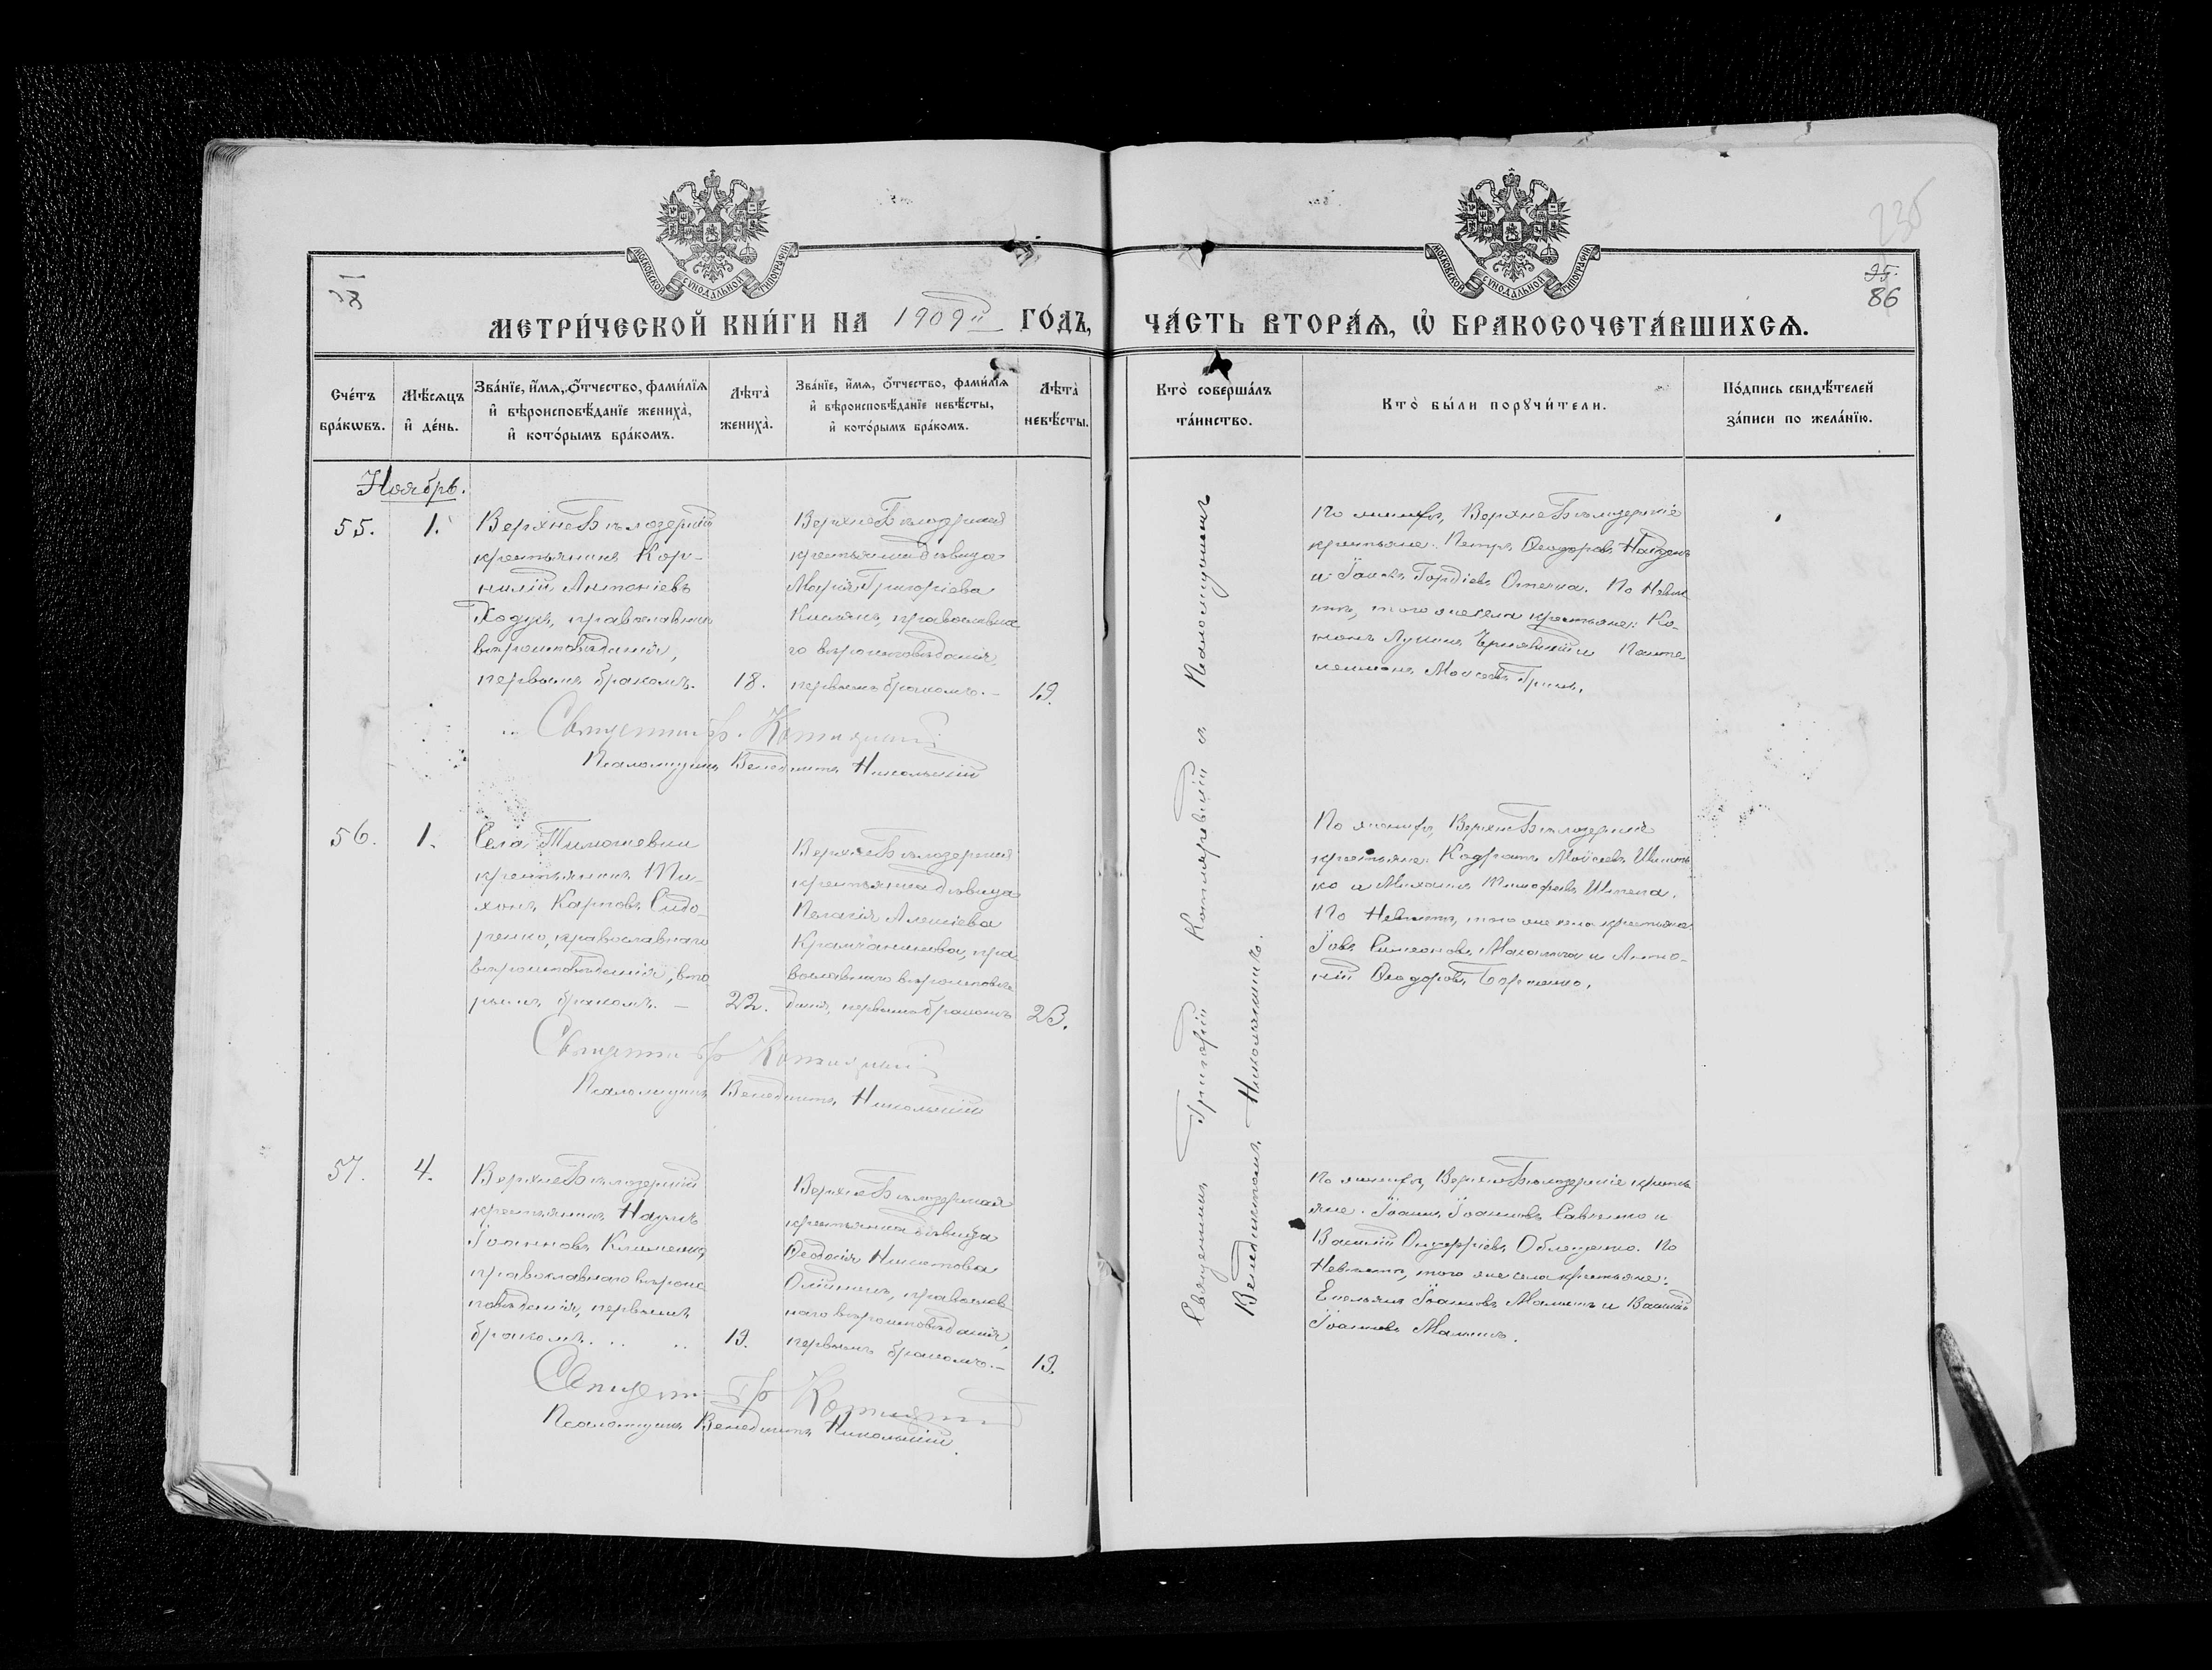 МОСКОВСКОЙ СѴНОДАЛЬНОЙ ТИПОГРАФІИ
МЕТРИ́ЧЕСКОЙ КНИ́ГИ НА 1909й ГО́ДЪ,
Сче́тъ бра́кѡвъ.
Мѣ́сяцъ и҆ де́нь.
Зва́нїе, и҆́мѧ, ѻ҆́тчество, фами́лїѧ
и҆ вѣроисповѣ́данїе жениха̀,
и҆ кото́рымъ бра́комъ.
Лѣта̀ жениха̀.
Зва́нїе, и҆́мѧ, ѻ҆́тчество, фами́лїѧ
и҆ вѣроисповѣ́данїе невѣ́сты,
и҆ кото́рымъ бра́комъ.
Лѣта̀ невѣ́сты.
Ноябрь.
55.
1.
ВерхнеБѣлозерскій
крестьянинъ Кор-
нилій Антоніевъ
Ходусъ, православнаго
вѣроисповѣданія,
первымъ бракомъ.
18.
ВерхнеБѣлозерская
крестьянка дѣвица
Марія Григоріева
православна
го вѣроисповѣданія,
первымъ бракомъ. –
19.
Псаломщикъ Венедиктъ Никольскій
56.
1.
Села Тимошевки
крестьянинъ Ти-
хонъ Карповъ Сидо-
ренко, православнаго
вѣроисповѣданія, вто
рымъ бракомъ. –
22.
ВерхнеБѣлозерская
крестьянка дѣвица
Пелагія Алексіева
Крамчанинова, пра
вославнаго вѣроисповѣ
данія, первымъ бракомъ
23.
Псаломщикъ Венедиктъ Никольскій
57.
4.
ВерхнеБѣлозерскій
крестьянинъ Наумъ
Іоанновъ Клименко,
православнаго вѣроис
повѣданія, первымъ
бракомъ. . . ..
19.
ВерхнеБѣлозерская
крестьянка дѣвица
Ѳеодосія Никитова
Олійникъ, православ
наго вѣроисповѣданія,
первымъ бракомъ. –
19.
Псаломщикъ Венедиктъ Никольскій.
МОСКОВСКОЙ СѴНОДАЛЬНОЙ ТИПОГРАФІИ
235
86
ЧА́СТЬ ВТОРА́Ѧ, Ѽ БРАКОСОЧЕТА́ВШИХСѦ.
Кто̀ соверша́лъ
та́инство.
Кто̀ бы́ли порꙋчи́тели.
По́дпись свидѣ́телей
за́писи по жела́нїю.
Священникъ Григорій Котляревскій съ Псаломщикомъ
Венедиктомъ Никольскимъ.
По женихѣ, ВерхнеБѣлозерскіе
крестьяне: Петръ Ѳеодоровъ
и Гордіевъ По Невѣс
тѣ, того же села крестьяне: Ко-
нонъ и Панте
леимонъ Моисеевъ
По женихѣ, ВерхнеБѣлозерскіе
крестьяне: Кодратъ Моѵсеевъ
ко и Михаилъ Тимофеевъ Шпега.
По Невѣстѣ, того же села крестьяне:
Іовъ Симеоновъ и Анто-
ній Ѳеодоровъ
По женихѣ, ВерхнеБѣлозерскіе кресть
яне: Іоаннъ Іоанновъ Савченко и
Василій Онуфріевъ По
Невѣстѣ, того же села крестьяне:
Емельянъ Іоанновъ и Василій
Іоанновъ